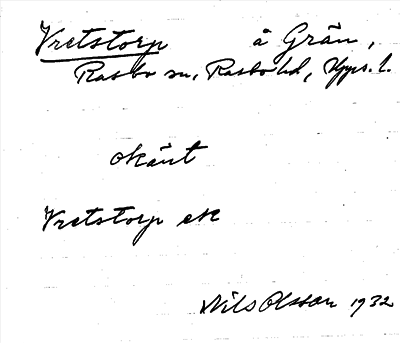 Vretstorp å Grän,
Rasbo sn, Rasbo hd, Upps. l.
okänt
Vretstorp ek
Nils Olsson 1932